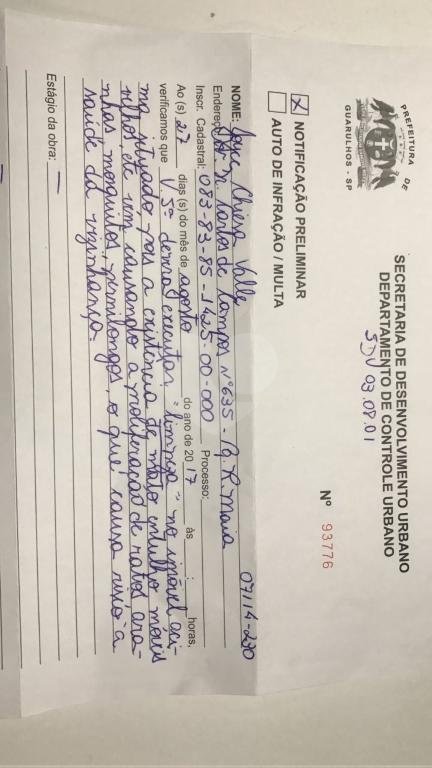 PREFEITURA DE
GUARULHOS - SP
SECRETARIA DE DESENVOLVIMENTO URBANO
DEPARTAMENTO DE CONTROLE URBANO
SDU 03.08.01
Nº 93776
X NOTIFICAÇÃO PRELIMINAR
AUTO DE INFRAÇÃO / MULTA
07114-230
NOME: Chiesa Valle
Endereço: Carlos de Campos Nº 635 - R. Maia
Inscr. Cadastral: 083-83-85-1425-00-000 Processo:
Ao (s) 27 dias (s) do mês de agosto do ano de 2017 às : horas,
verificamos que V Sª deverá executar "limpeza" no imóvel aci-
ma situado pois a existência de mato, entulho, móveis
velhos, etc vem causando a proliferação de ratos, ara-
nhas mosquitos, pernilongos, o que causa risco à
saúde da vizinhança.
Estágio da obra: —